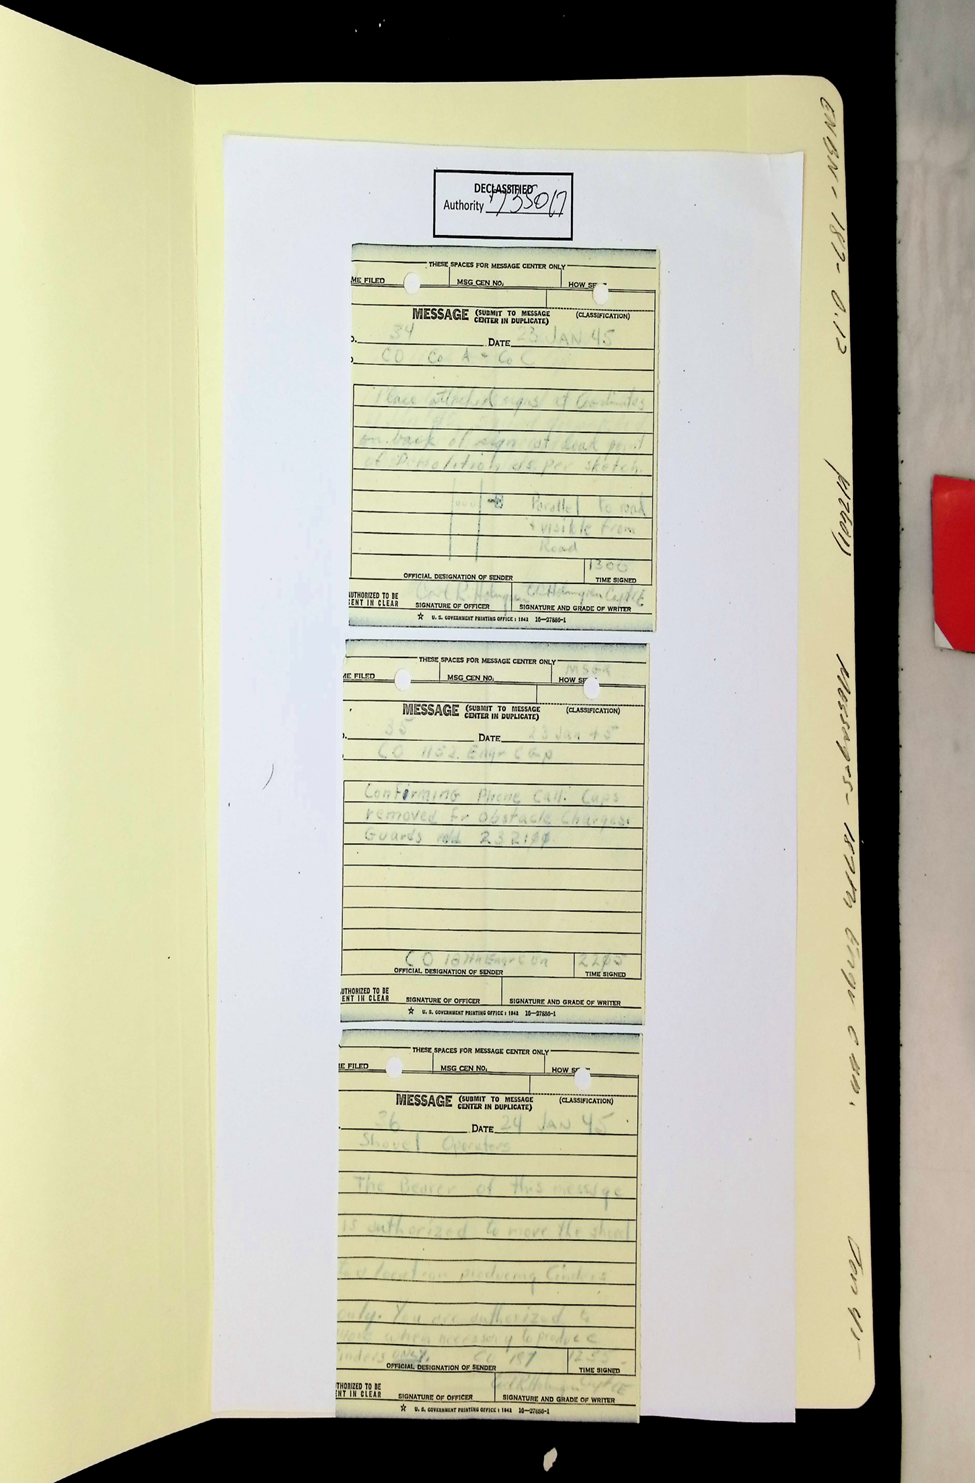 DECLASSIFIED
Authority 735017
THESE SPACES FOR MESSAGE CENTER ONLY
ME FILED MSG CEN NO. HOW SE
MESSAGE (SUBMIT TO MESSAGE CENTER IN DUPLICATE) (CLASSIFICATION)
34 DATE 23 JAN 45
CO Co A + Co C
Place attached signs at Coordinates
on back of sign at point
of Demolition as per sketch.
Parallel to road
+ visible from
Road
1300
OFFICIAL DESIGNATION OF SENDER TIME SIGNED
AUTHORIZED TO BE
SENT IN CLEAR
SIGNATURE OF OFFICER SIGNATURE AND GRADE OF WRITER
☆ U. S. GOVERNMENT PRINTING OFFICE : 1942 16—27886-1
THESE SPACES FOR MESSAGE CENTER ONLY
ME FILED MSG CEN NO. HOW SE
MESSAGE (SUBMIT TO MESSAGE CENTER IN DUPLICATE) (CLASSIFICATION)
35 DATE 23 Jan 45
CO 1152 Engr C Gp
Confirming Phone Call. Caps
removed Fr Obstacle Charges.
Guards
CO Engr C Bn
OFFICIAL DESIGNATION OF SENDER TIME SIGNED
UTHORIZED TO BE
ENT IN CLEAR
SIGNATURE OF OFFICER SIGNATURE AND GRADE OF WRITER
☆ U. S. GOVERNMENT PRINTING OFFICE : 1942 16—27886-1
THESE SPACES FOR MESSAGE CENTER ONLY
E FILED MSG CEN NO. HOW SE
MESSAGE (SUBMIT TO MESSAGE CENTER IN DUPLICATE) (CLASSIFICATION)
36 DATE 24 JAN 45
Shovel Operators
The Bearer of this message
is authorized to move the shovel
to a location producing Cinders
only. You are authorized to
move when necessary to produce
Cinders ONLY. CO 187 1255
OFFICIAL DESIGNATION OF SENDER TIME SIGNED
THORIZED TO BE
NT IN CLEAR
SIGNATURE OF OFFICER SIGNATURE AND GRADE OF WRITER
☆ U. S. GOVERNMENT PRINTING OFFICE : 1942 16—27886-1
ENBN - 187- 0.13
Messages- 187th Engr C Bn.